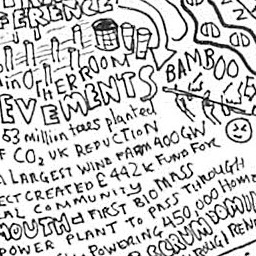 FERENCE
in OTHER ROOM
BAMBOO
EVEMENTS
53 million trees planted
F CO2 UK REDUCTION
LARGEST WIND FARM 400GW
ECT CREATED £442K FUND FOR
AL COMMUNITY
MOUTH FIRST BIOMASS
POWER PLANT TO PASS THROUGH
POWERING 450,000 HOME